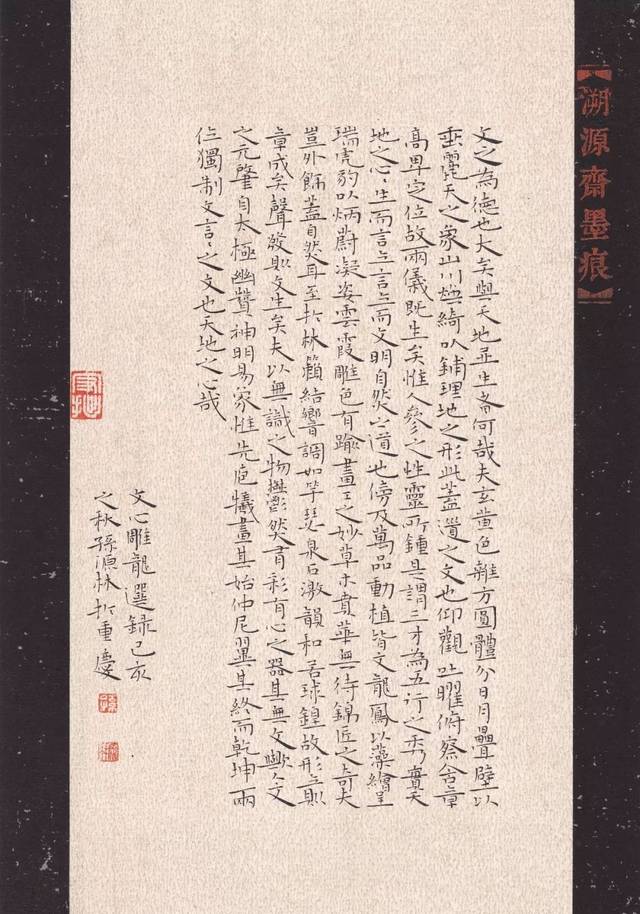 【溯源齋墨痕】
文之為德也大矣與天地並生者何哉夫玄黃色雜方圓體分日月疊璧以
垂麗天之象山川煥綺以鋪理地之形此蓋道之文也仰觀吐曜俯察含章
高卑定位故兩儀既生矣惟人參之性靈所鍾是謂三才為五行之秀實天
地之心〻生而言立言立而文明自然之道也傍及萬品動植皆文龍鳳以藻繪呈
瑞虎豹以炳蔚凝姿雲霞雕色有踰畫工之妙草木賁華無待錦匠之奇夫
豈外飾蓋自然耳至於林籟結響調如竽瑟泉石激韻和若球鍠故形立則
章成矣聲發則文生矣夫以無識之物鬱然有彩有心之器其無文歟人文
之元肇自太極幽贊神明易象惟先庖犧畫其始仲尼翼其終而乾坤兩
位獨制文言〻之文也天地之心哉
文心雕龍選錄己亥
之秋孫源林於重慶